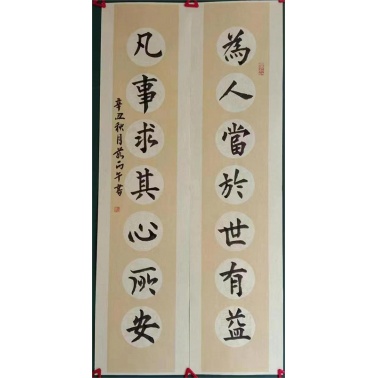 為人當於世有益
凡事求其心所安
辛丑秋月 丙午書